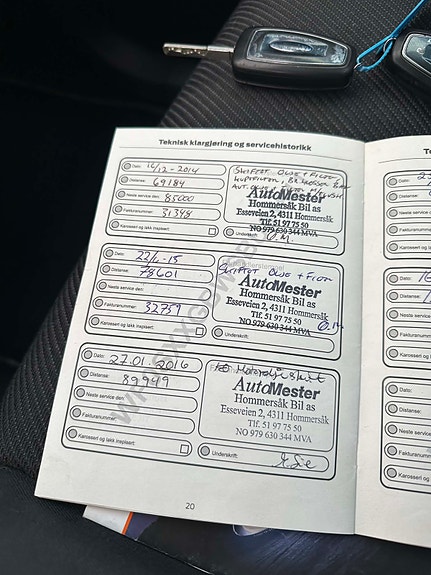 Teknisk klargjøring og servicehistorikk
Dato: 16/12-2014
Distanse: 69184
Neste service den: 85000
Fakturanummer: 31348
Karosseri og lakk inspisert:
SKIFTET OLJE + FILTER
AutoMester
Hommersåk Bil as
Esseveien 2, 4311 Hommersåk
Tlf. 51 97 75 50
NO 979 630 344 MVA
Dato: 22/6-15
Distanse: 78601
Neste service den:
Fakturanummer: 32759
Karosseri og lakk inspisert:
SKIFTET OLJE + FILTER
AutoMester
Hommersåk Bil as
Esseveien 2, 4311 Hommersåk
Tlf. 51 97 75 50
NO 979 630 344 MVA
Underskrift:
Dato: 27.01.2016
Distanse: 89949
Neste service den:
Fakturanummer:
Karosseri og lakk inspisert:
Motoroljeskift
AutoMester
Hommersåk Bil as
Esseveien 2, 4311 Hommersåk
Tlf. 51 97 75 50
NO 979 630 344 MVA
Underskrift:
20
Dato:
Distanse:
Neste ser
Fakturan
Karosseri
Dato:
Distanse:
Neste se
Fakturan
Karosser
Dato:
Distanse:
Neste se
Faktura
Karosse